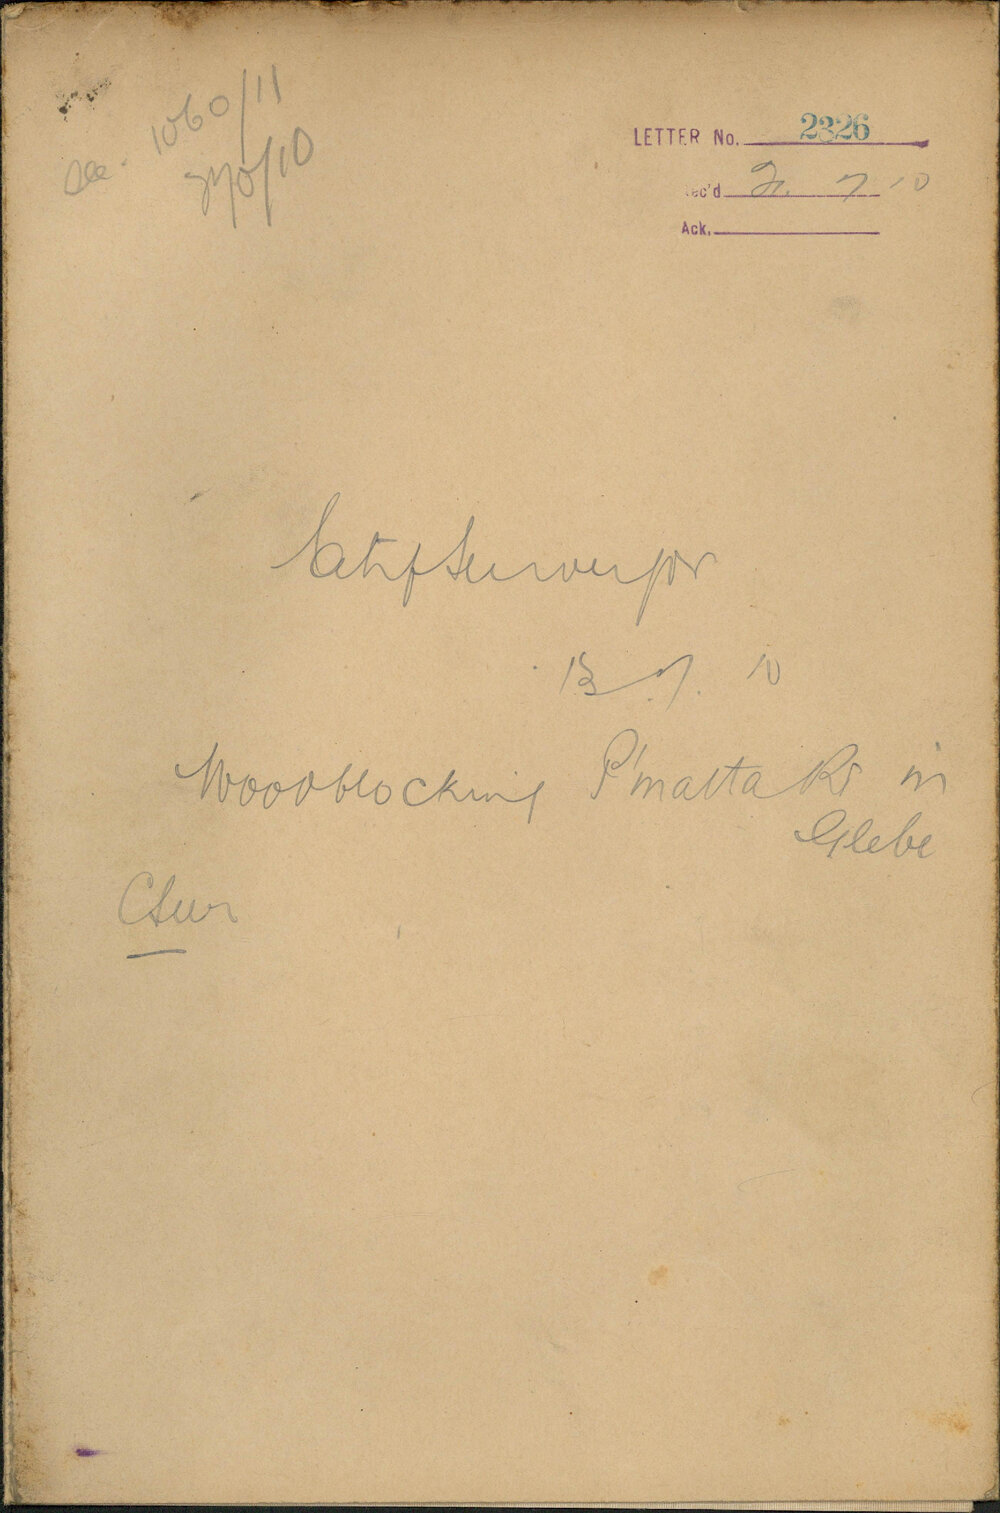 See 1060/11
LETTER No. 2326
Rec'd 21. 7 10
Ack.
City Surveyor
13. 7. 10
Woodblocking P'matta Rd in
Glebe
CSur